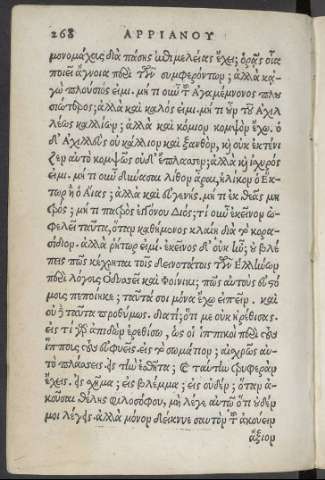 268 ΑΡΡΙΑΝΟΥ
μονομάχοις διὰ πάσης ἐπιμελείας ἔχει; ὁρᾷς οἷα
ποιεῖ ἄγνοια περὶ τῶν συμφερόντων; ἀλλὰ κἀ-
γὼ πλούσιός εἰμι. μή τι οὖν τοῦ Ἀγαμέμνονος πλου
σιώτερος; ἀλλὰ καὶ καλός εἰμι. μή τι οὖν τοῦ Ἀχιλ
λέως καλλίων; ἀλλὰ καὶ κόμιον κομψὸν ἔχω. ὁ
δ' Ἀχιλλεὺς οὐ κάλλιον καὶ ξανθόν, κἡ οὐκ ἐκτένι
ζεν αὐτὸ κομψῶς οὐδ' ἔπλασσεν; ἀλλὰ κἡ ἰσχυρός
εἰμι. μή τι οὖν δύνασαι λίθον ἆραι, ἡλίκον ὁ Ἕκ-
τωρ ἢ ὁ Αἴας; ἀλλὰ καὶ εὐγενής. μή τι ἐκ θεᾶς μη
τρός; μή τι πατρὸς ἐγγόνου Διός; τί οὖν ἐκεῖνον ὠ-
φελεῖ ταῦτα, ὅταν καθήμενος κλαίῃ διὰ τὸ κορα-
σίδιον. ἀλλὰ ῥήτωρ εἰμί. ἐκεῖνος δ' οὐκ ἦν; οὐ βλέ-
πεις πῶς κέχρηται τοῖς δεινοτάτοις τῶν Ἑλλήνων
περὶ λόγους Ὀδυσσεῖ καὶ Φοίνικι; πῶς αὐτοὺς ἀστό
μοις πεποίηκε; ταῦτά σοι μόνα ἔχω εἰπεῖν. καὶ
οὐδὲ ταῦτα προθύμως. διατί; ὅτι με οὐκ ἠρέθισας.
εἰς τί γὰρ ἀπιδὼν ἐρεθίσω, ὡς οἱ ἱππικοὶ περὶ τοὺς
ἵππους τοὺς εὐφυεῖς; εἰς τὸ σωμάτιον; αἰσχρῶς αὐ-
τὸ πλάσσεις. εἰς τὴν ἐσθῆτα; καὶ ταύτην τρυφερὰν
ἔχεις. εἰς σχῆμα; εἰς βλέμμα; εἰς οὐδέν; ὅταν ἀ-
κοῦσαι θέλῃς φιλοσόφου, μὴ λέγε αὐτῷ ὅτι οὐδέν
μοι λέγεις. ἀλλὰ μόνον δείκνυε σαυτὸν τοῦ ἀκούειν
ἄξιον